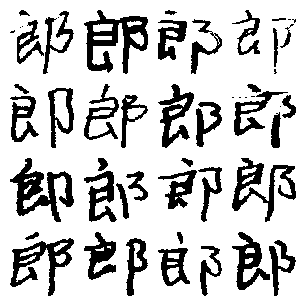 郎郎郎郎
郎郎郎郎
郎郎郎郎
郎郎郎郎